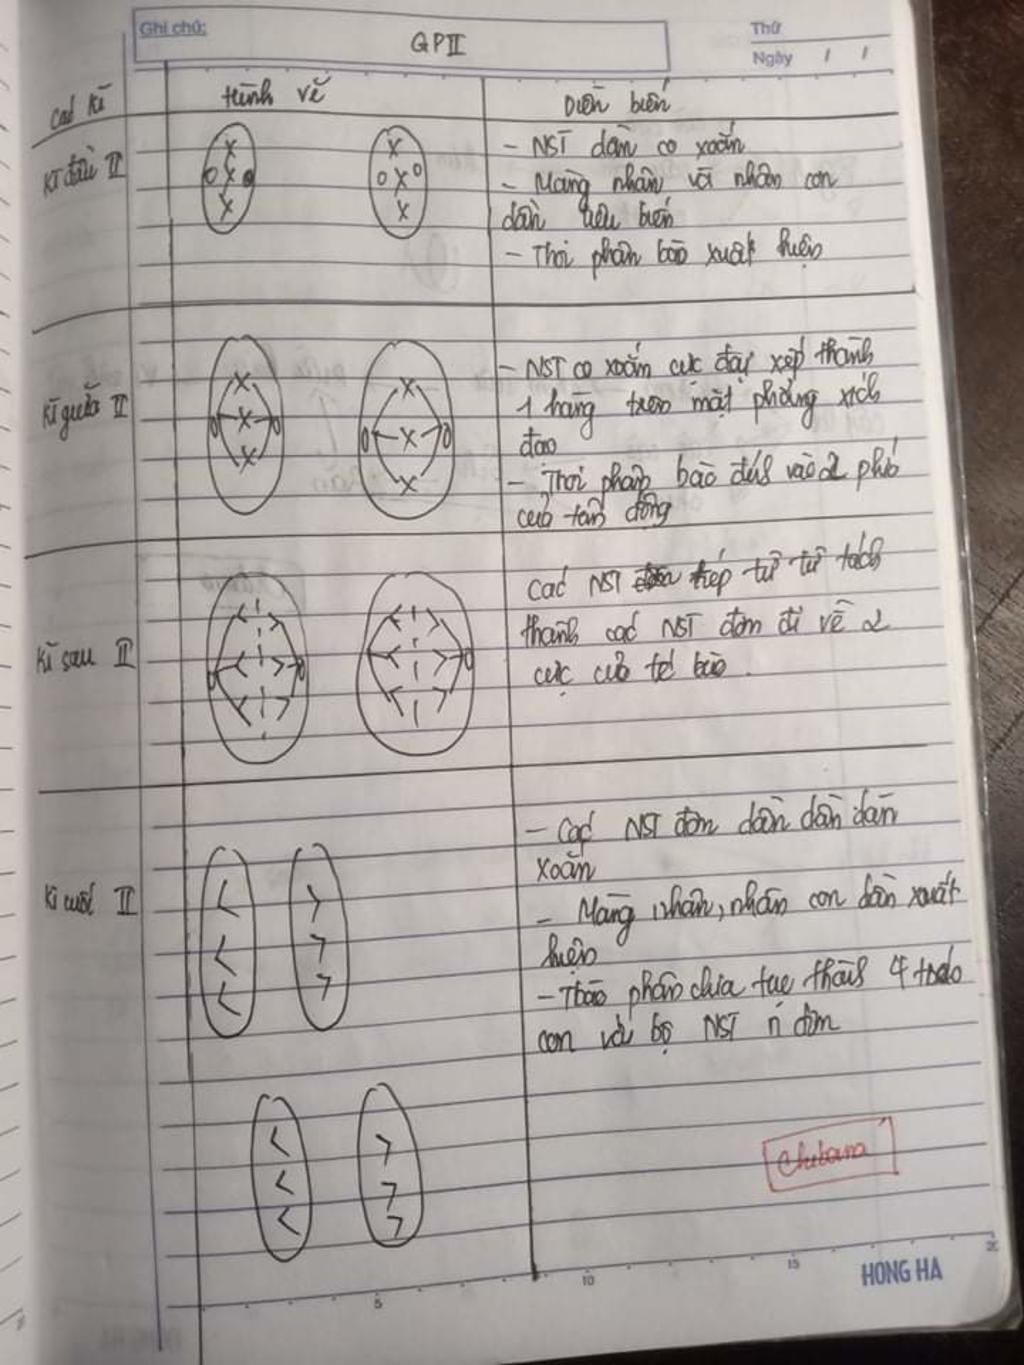 Ghi chú:
GP II
Thứ
Ngày / /
Các kì
Hình vẽ
Diễn biến
Kì đầu II
- NST dần co xoắn
- Màng nhân và nhân con
dần tiêu biến
- Thoi phân bào xuất hiện
Kì giữa II
- NST co xoắn cực đại xếp thành
1 hàng trên mặt phẳng xích
đạo
- Thoi phân bào đính vào 2 phía
của tâm động
Kì sau II
Các NST kép từ từ tách
thành các NST đơn đi về 2
cực của tế bào.
Kì cuối II
- Các NST đơn dần dần dãn
xoắn
- Màng nhân, nhân con dần xuất
hiện
- Tbào phân chia tạo thành 4 tbào
con với bộ NST n đơn
HONG HA
5
10
15
20